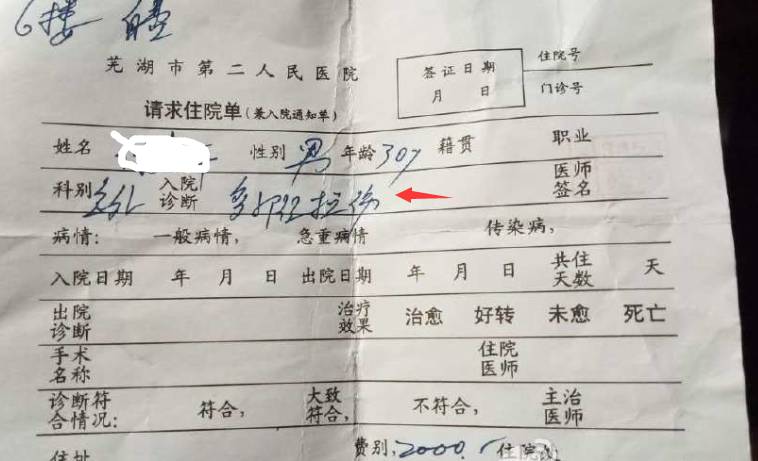 6楼
芜湖市第二人民医院
签证日期
月 日
住院号
门诊号
请求住院单(兼入院通知单)
姓名 性别 男 年龄 30y 籍贯 职业
科别 入院诊断 多部位拉伤 医师签名
病情: 一般病情, 急重病情 传染病,
入院日期 年 月 日 出院日期 年 月 日 共住天数 天
出院诊断 治疗效果 治愈 好转 未愈 死亡
手术名称 住院医师
诊断符合情况: 符合, 大致符合, 不符合, 主治医师
住址 费别, 2000. 住院